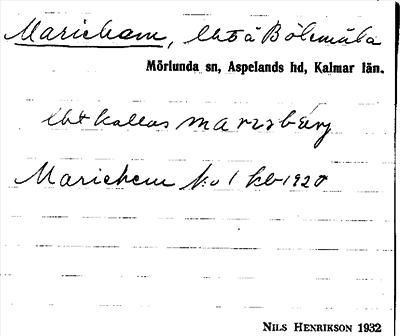 Marieham, lht å Bölemåla
Mörlunda sn, Aspelands hd, Kalmar län.
lht kallas Marisbärg
Mariehem kv 1 kb 1920
NILS HENRIKSON 1932